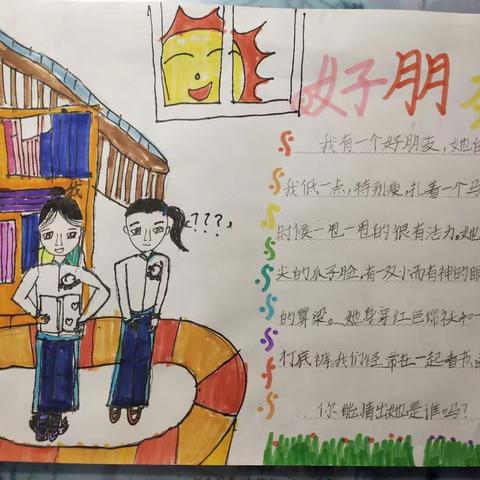 好朋
我有一个好朋友,她
我低一点,特别瘦,扎着一个马
时候一甩一甩的很有活力。她
尖的瓜子脸,有一双小而有神的眼
的鼻梁。她身穿红色棉袄和一
打底裤。我们经常在一起看书,
你能猜出她是谁吗?
我
???